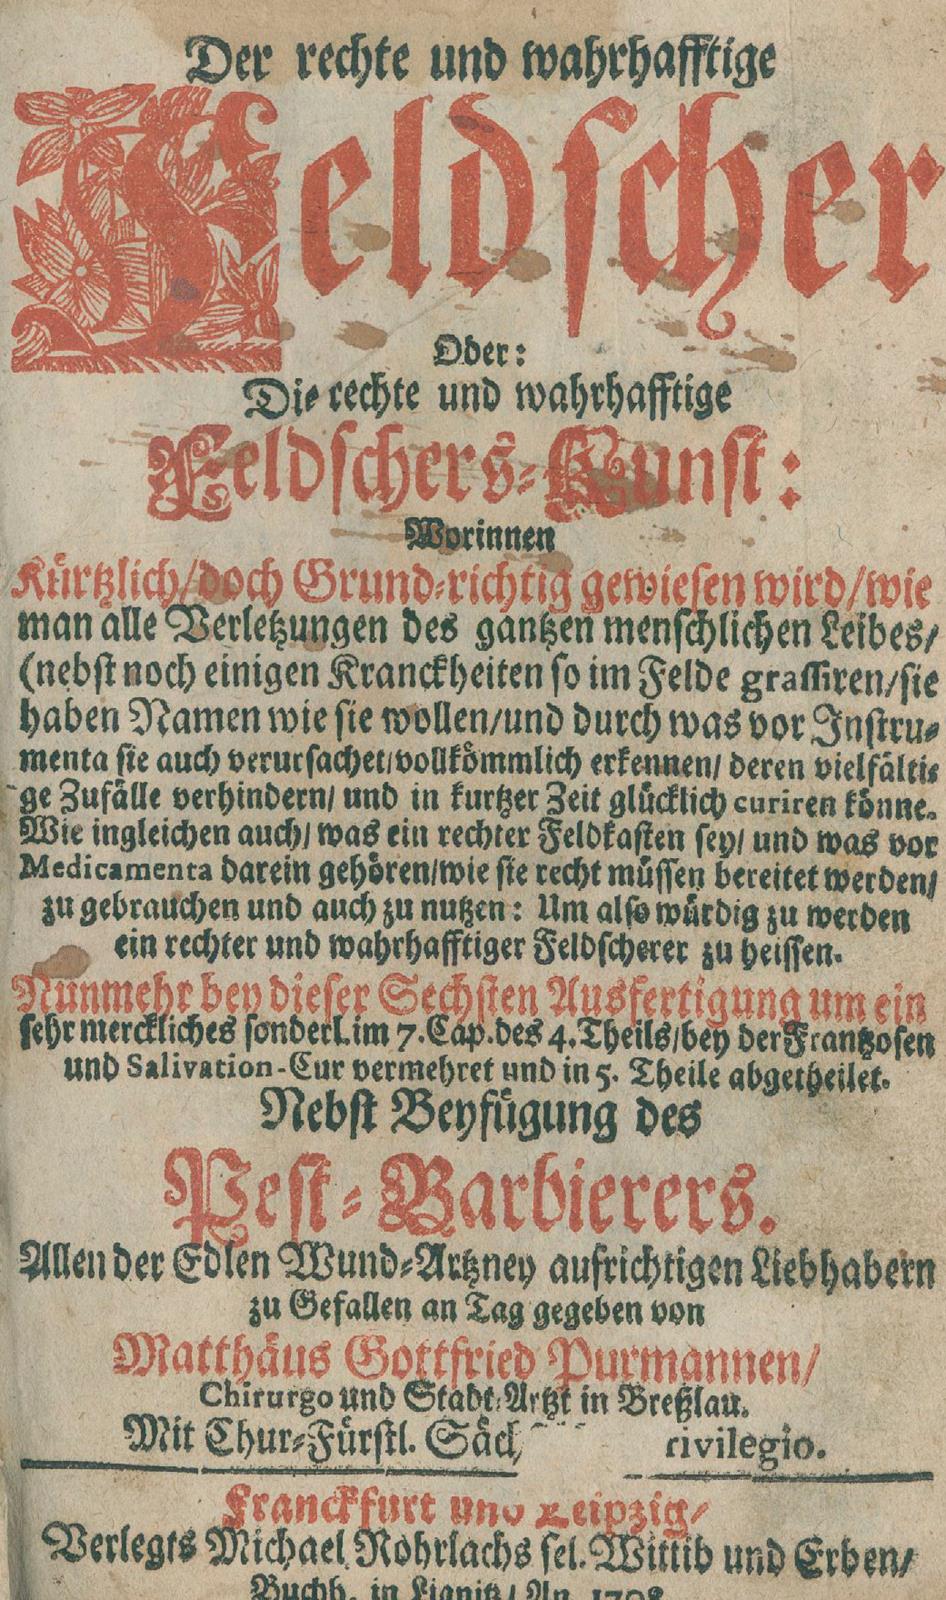 Der rechte und wahrhafftige
Feldscher
Oder:
Die rechte und wahrhafftige
Feldschers-Kunst:
Worinnen
Kürtzlich/doch Grund-richtig gewiesen wird/wie
man alle Verletzungen des gantzen menschlichen Leibes/
(nebst noch einigen Kranckheiten so im Felde grassiren/sie
haben Namen wie sie wollen/und durch was vor Instru-
menta sie auch verursachet/vollkömmlich erkennen/ deren vielfälti-
ge Zufälle verhindern/ und in kurtzer Zeit glücklich curiren könne.
Wie ingleichen auch/ was ein rechter Feldkasten sey/ und was vor
Medicamenta darein gehören/wie sie recht müssen bereitet werden/
zu gebrauchen und auch zu nutzen: Um also würdig zu werden
ein rechter und wahrhafftiger Feldscherer zu heissen.
Nunmehr bey dieser Sechsten Ausfertigung um ein
sehr merckliches sonderl.im 7.Cap.des 4.Theils/bey der Frantzosen
und Salivation-Cur vermehret und in 5. Theile abgetheilet.
Nebst Beyfügung des
Pest-Barbierers.
Allen der Edlen Wund-Artzney aufrichtigen Liebhabern
zu Gefallen an Tag gegeben von
Matthäus Gottfried Purmannen/
Chirurgo und Stadt-Artzt in Breßlau.
Mit Chur-Fürstl. Säc rivilegio.
Franckfurt und Leipzig/
Verlegts Michael Rohrlachs sel. Wittib und Erben/
Buchh. in Lignitz/ An.